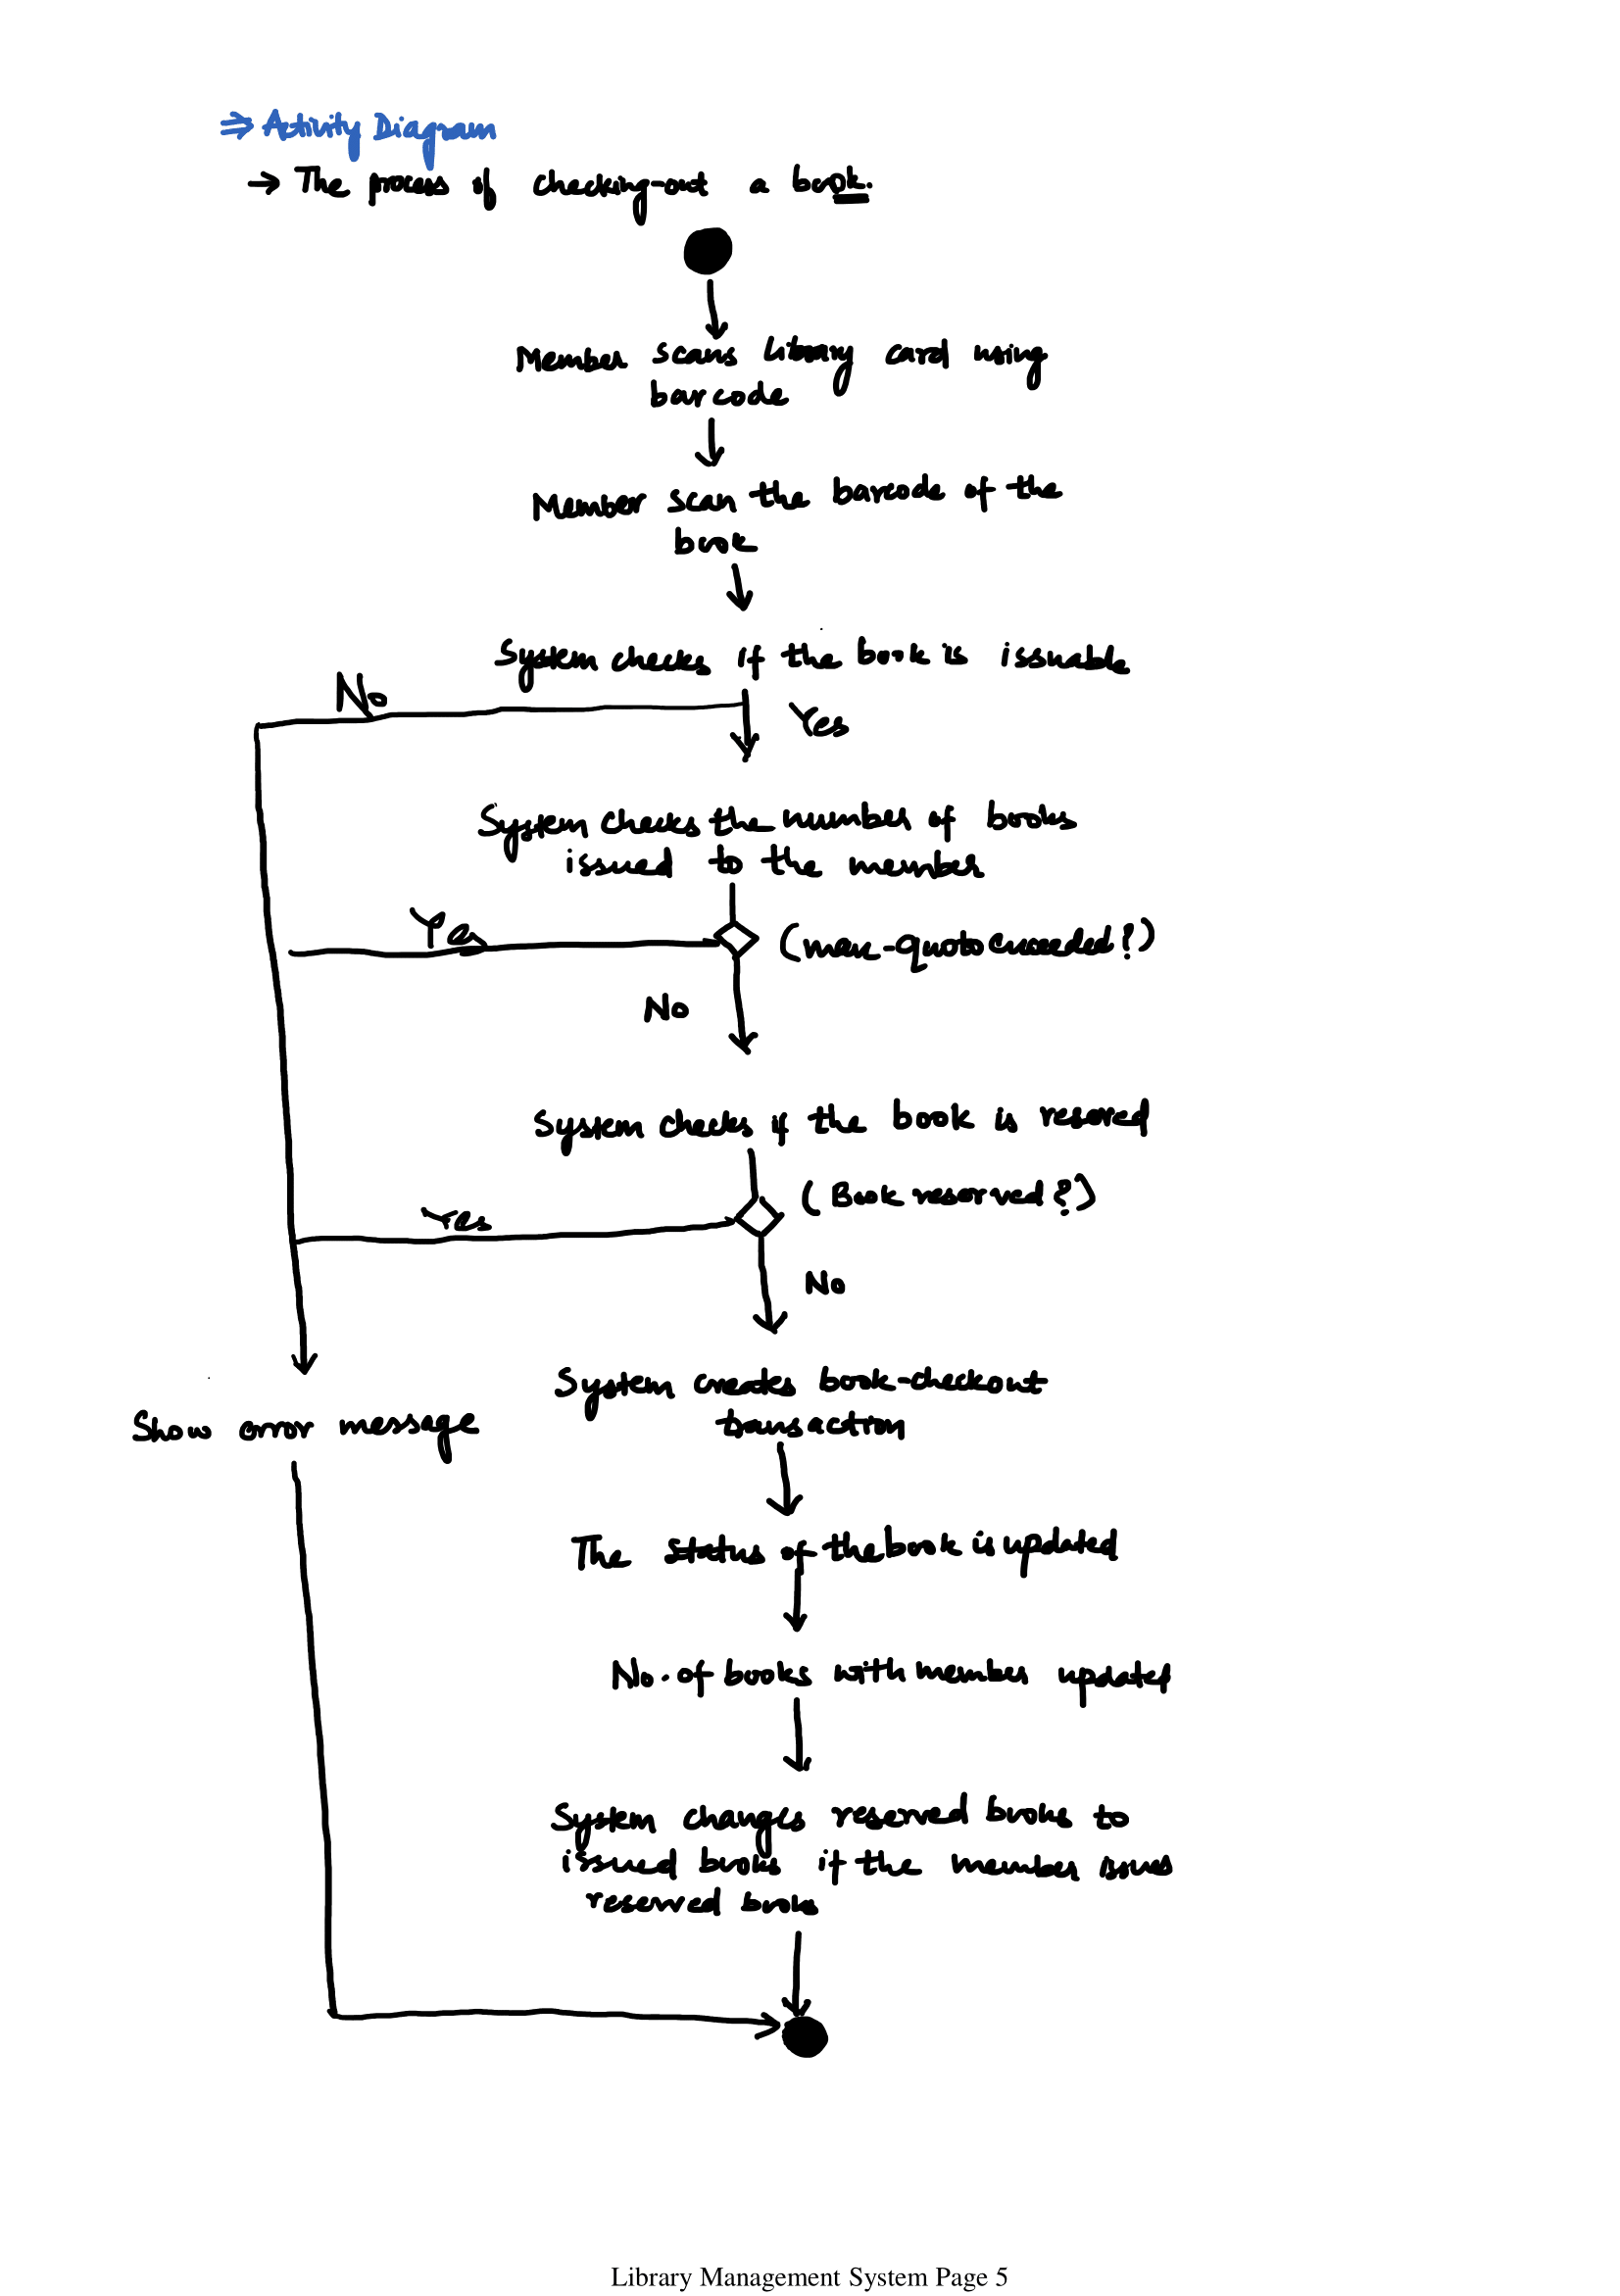 ⇒ Activity Diagram
→ The process of checking-out a book.
Member scans library card using
barcode
Member scan the barcode of the
book
System checks if the book is issuable
No
Yes
System checks the number of books
issued to the member
Yes
(max-quota exceeded?)
No
System checks if the book is reserved
(Book reserved?)
Yes
No
System creates book-checkout
transaction
Show error message
The status of the book is updated
No. of books with member updated
System changes reserved books to
issued books if the member issues
reserved books
Library Management System Page 5